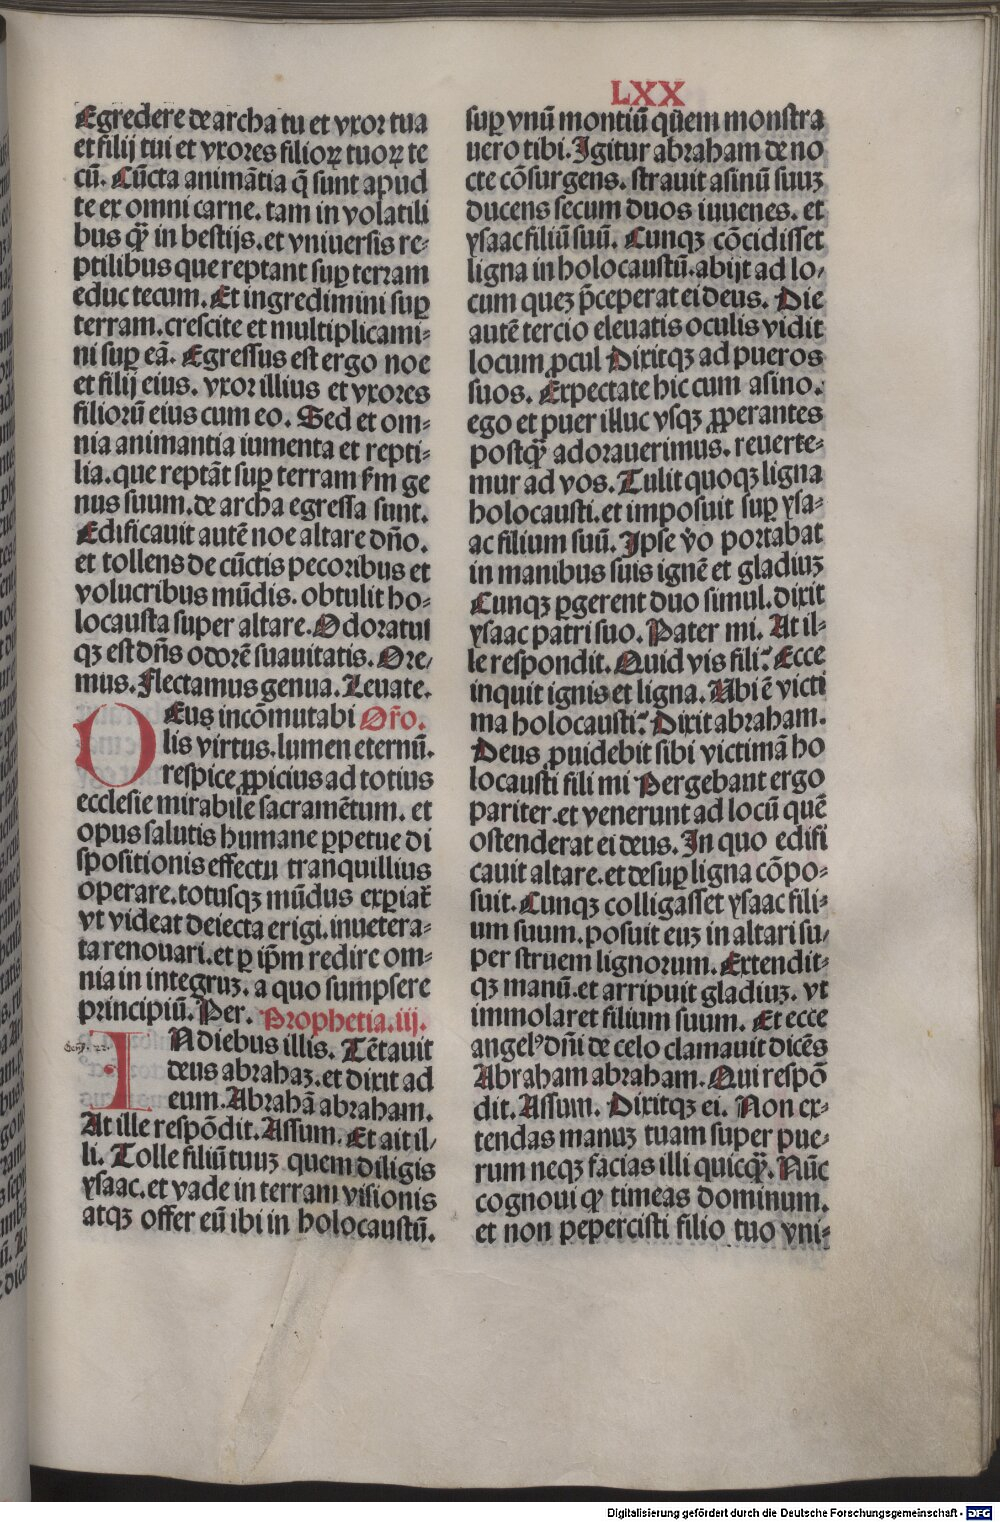 LXX
Egredere de archa tu et vxor tua
et filij tui et vxores filioꝝ tuoꝝ te
cū. Cūcta animātia q̄ sunt apud
te ex omni carne. tam in volatili
bus qꝫ̄ in bestijs. et vniuersis re⸗
ptilibus que reptant sup̱ terram
educ tecum. Et ingredimini sup̱
terram. crescite et multiplicami⸗
ni sup̱ eā. Egressus est ergo noe
et filij eius. vxor illius et vxores
filiorū eius cum eo. Sed et om⸗
nia animantia iumenta et repti⸗
lia. que reptāt sup̱ terram ẜm ge
nus suum. de archa egressa sunt.
Edificauit autē noe altare dn̄o.
et tollens de cūctis pecoribus et
volucribus mūdis. obtulit ho⸗
locausta super altare. Odoratus
qꝫ est dn̄s odorē suauitatis. Ore⸗
mus. Flectamus genua. Leuate.
DEus incōmutabi Or̄o.
lis virtus. lumen eternū.
respice ꝓpicius ad totius
ecclesie mirabile sacramētum. et
opus salutis humane ꝑpetue di
spositionis effectu tranquillius
operare. totusqꝫ mūdus exꝑiat᷑
vt videat deiecta erigi. inuetera⸗
ta renouari. et ꝑ ip̄m redire om⸗
nia in integruꝫ. a quo sumpsere
principiū. Per. Prophetia. iij.
Gen̄. 22.
IN diebus illis. Tētauit
deus abrahaꝫ. et dixit ad
eum. Abrahā abraham.
At ille respōdit. Assum. Et ait il⸗
li. Tolle filiū tuuꝫ quem diligis
ysaac. et vade in terram visionis
atqꝫ offer eū ibi in holocaustū.
sup̱ vnū montiū quem monstra
uero tibi. Igitur abraham de no
cte cōsurgens. strauit asinū suuꝫ
ducens secum duos iuuenes. et
ysaac filiū suū. Cunqꝫ cōcidisset
ligna in holocaustū. abijt ad lo⸗
cum queꝫ p̄ceperat ei deus. Die
autē tercio eleuatis oculis vidit
locum ꝓcul Dixitqꝫ ad pueros
suos. Expectate hic cum asino.
ego et puer illuc vsqꝫ ꝓperantes
postqꝫ̄ adorauerimus. reuerte⸗
mur ad vos. Tulit quoqꝫ ligna
holocausti. et imposuit sup̱ ysa⸗
ac filium suū. Ipse v̊o portabat
in manibus suis ignē et gladiuꝫ
Cunqꝫ ꝑgerent duo simul. dixit
ysaac patri suo. Pater mi. At il⸗
le respondit. Quid vis fili? Ecce
inquit ignis et ligna. Ubi ē victi
ma holocausti? Dixit abraham.
Deus ꝓuidebit sibi victimā ho
locausti fili mi Pergebant ergo
pariter. et venerunt ad locū quē
ostenderat ei deus. In quo edifi
cauit altare. et desup̱ ligna cōpo⸗
suit. Cunqꝫ colligasset ysaac fili⸗
um suum. posuit euꝫ in altari su⸗
per struem lignorum. Extendit⸗
qꝫ manū. et arripuit gladiuꝫ. vt
immolaret filium suum. Et ecce
angelꝰ dn̄i de celo clamauit dicēs
Abraham abraham. Qui respō
dit. Assum. Dixitqꝫ ei. Non ex⸗
tendas manuꝫ tuam super pue⸗
rum neqꝫ facias illi quicqꝫ̄. Nūc
cognoui ꝙ timeas dominum.
et non pepercisti filio tuo vni⸗
Digitalisierung gefördert durch die Deutsche Forschungsgemeinschaft - DFG